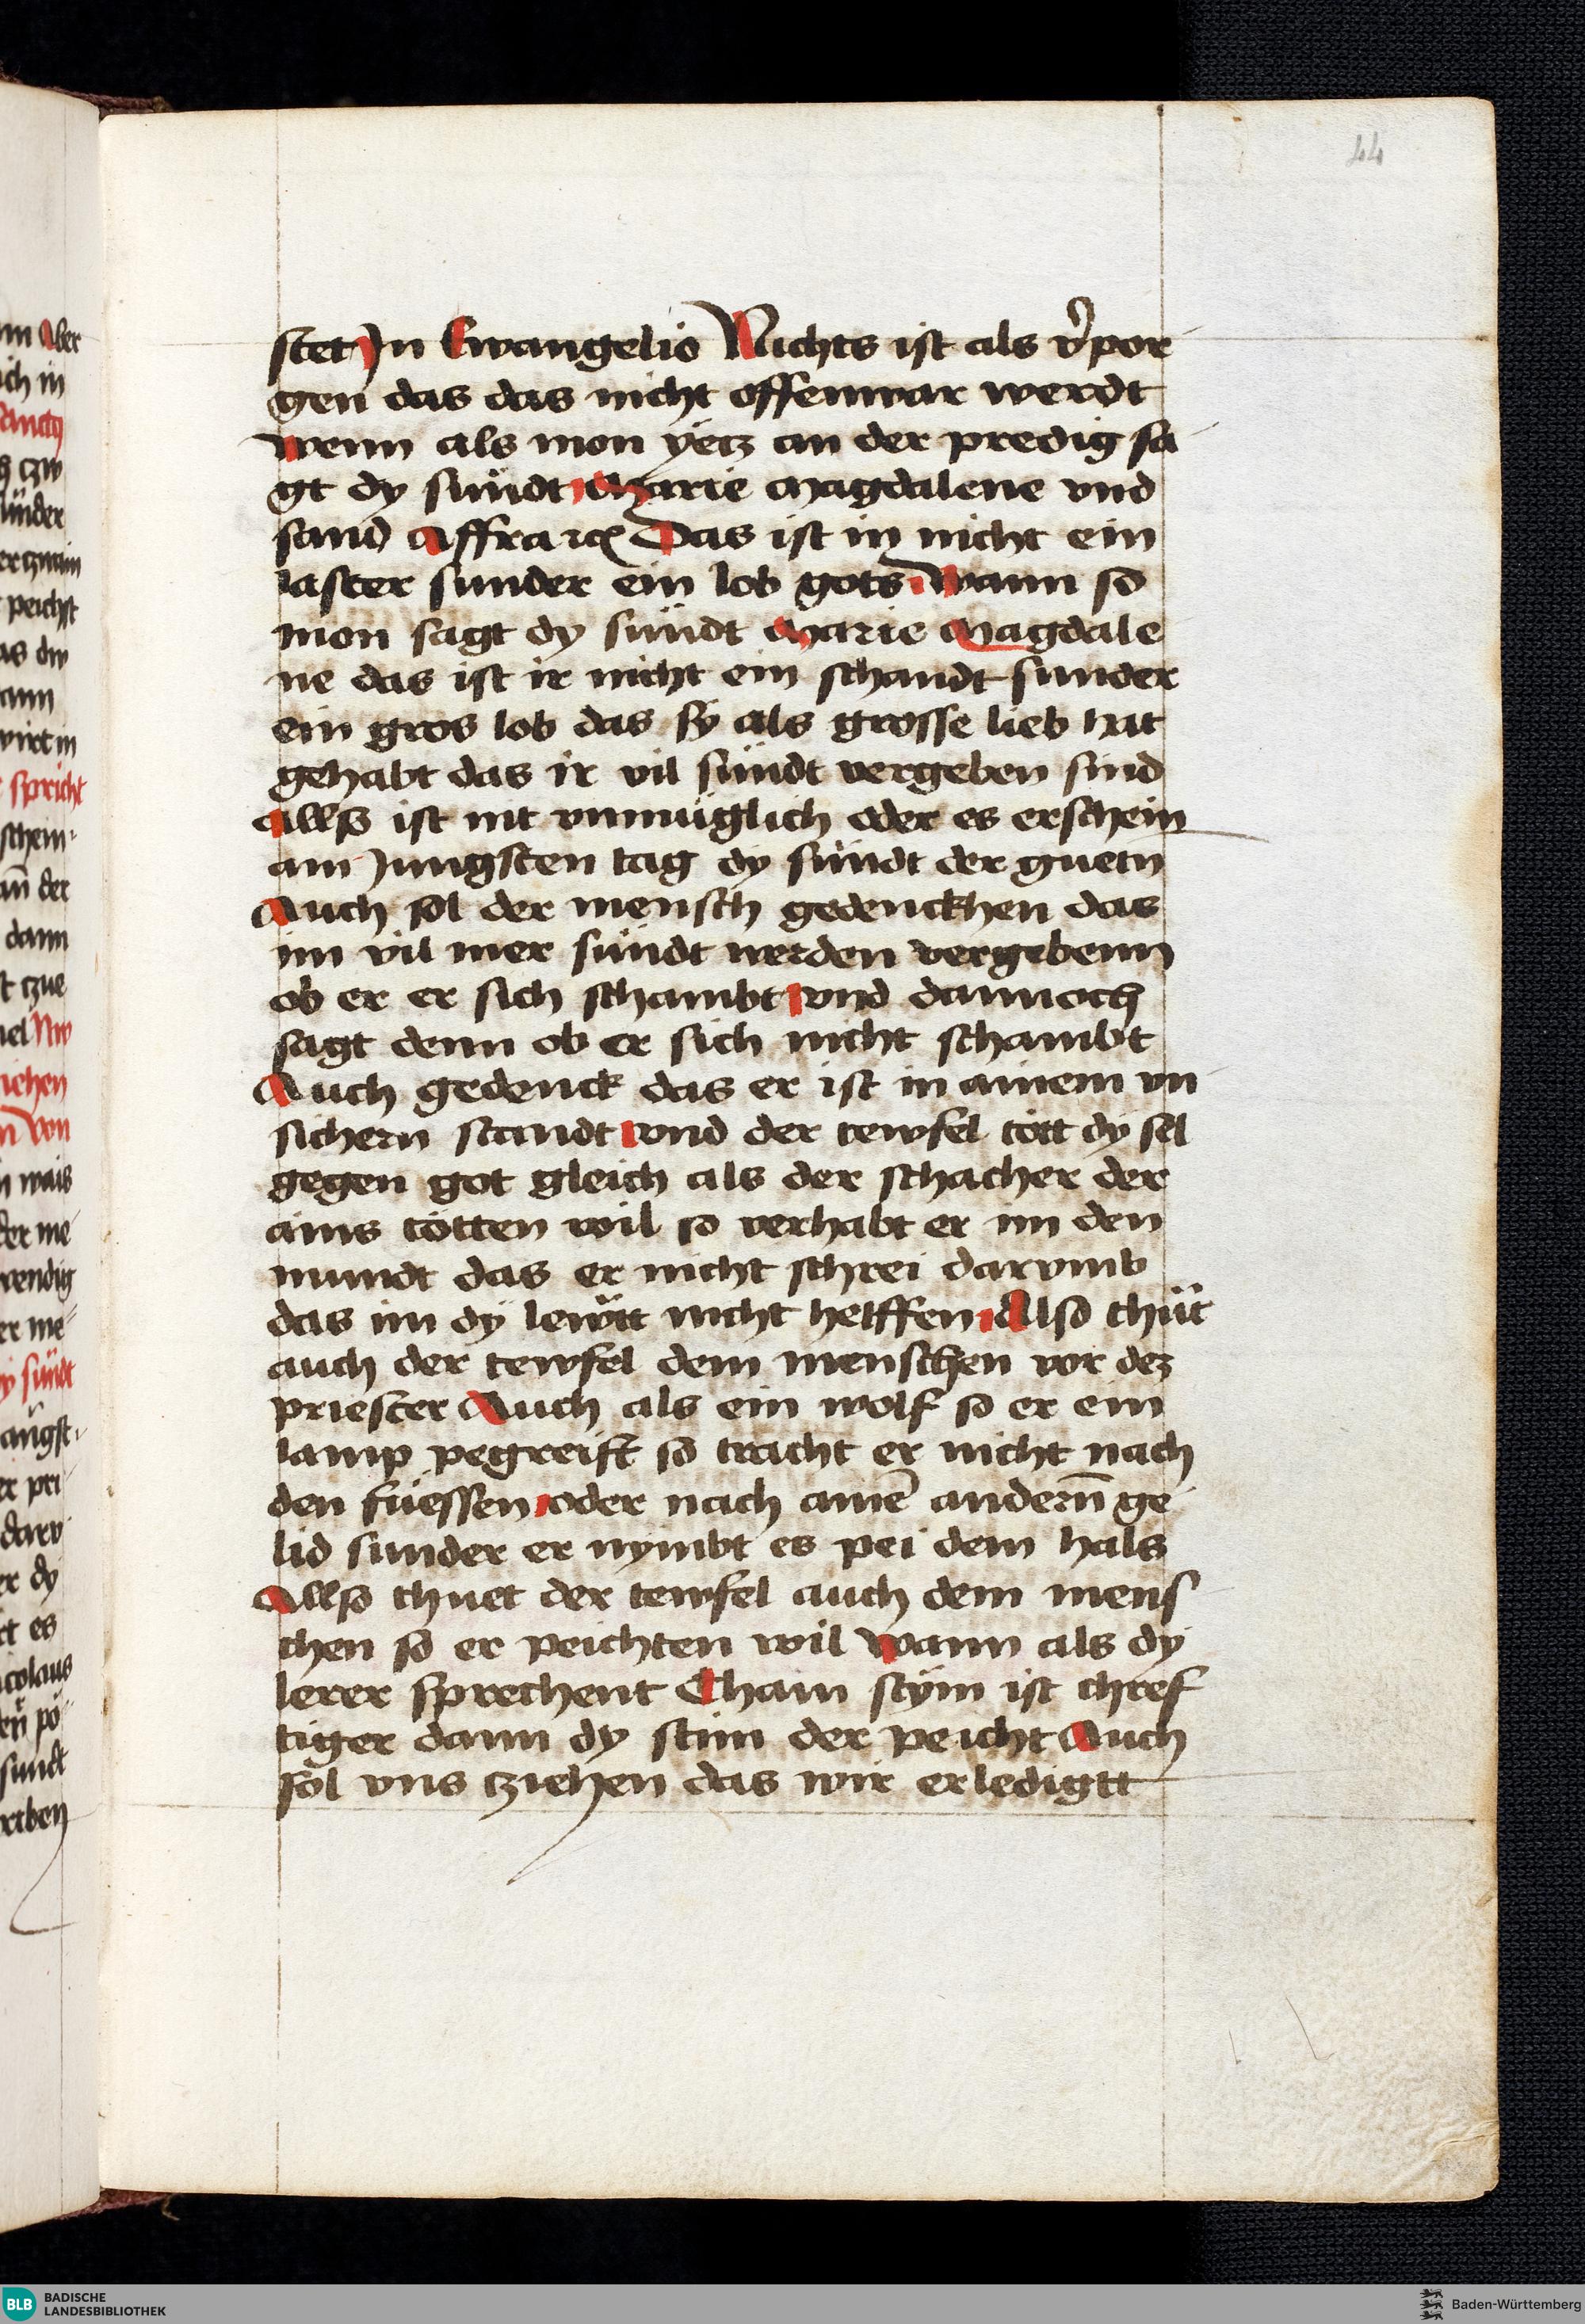 44
stet Jn Ewangelio Nichts ist als v̉por
gen das das nicht offenwar werdt
wenn als mon yetz an der predig sa
gt dy sündt Marie Magdalene vnd
sand Affra rc̃ Das ist in nicht ein
laster sunder ein lob gots Wann so
mon sagt dy sündt Marie Magdale
ne das ist ir nicht ein schandt sunder
ein gros lob das sy als grosse lieb hat
gehabt das ir vil sündt vergeben sind
Allso ist nit vnmüglich oder es erschein
am Jungsten tag dy sündt der guetn
Auch sol der mensch gedenckhen das
im vil mer sündt werden vergebenn
ob er er sich schambt vnd dannoch
sagt denn ob er sich nicht schambt
Auch gedenck das er ist in ainem vn
sichern standt vnd der tewfel tött dy sel
gegen got gleich als der schacher der
ains tötten wil so verhabt er im den
mundt das er nicht schrei darvmb
das im dy lewtt nicht helffen Also thüt
auch der tewfel dem menschen vor dez
priester Auch als ein wolf so er ein
lamp pegreift so tracht er nicht nach
den füessen oder nach aine᷑ anderñ ge
lid sunder er nymbt es pei dem hals
Allso thuet der tewfel auch dem mens
chen so er peichten wil Wann als dy
lerer sprechent Chain stým ist chref
tiger dann dy stim der peicht Auch
sol vns cziehen das wir erledigtt
BLB BADISCHE
LANDESBIBLIOTHEK
Baden-Württemberg